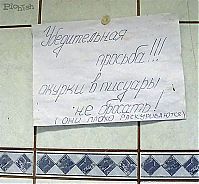 Fishki
Убедительная
просьба!!!
окурки в писуары
не бросать!
(они плохо раскуриваются)